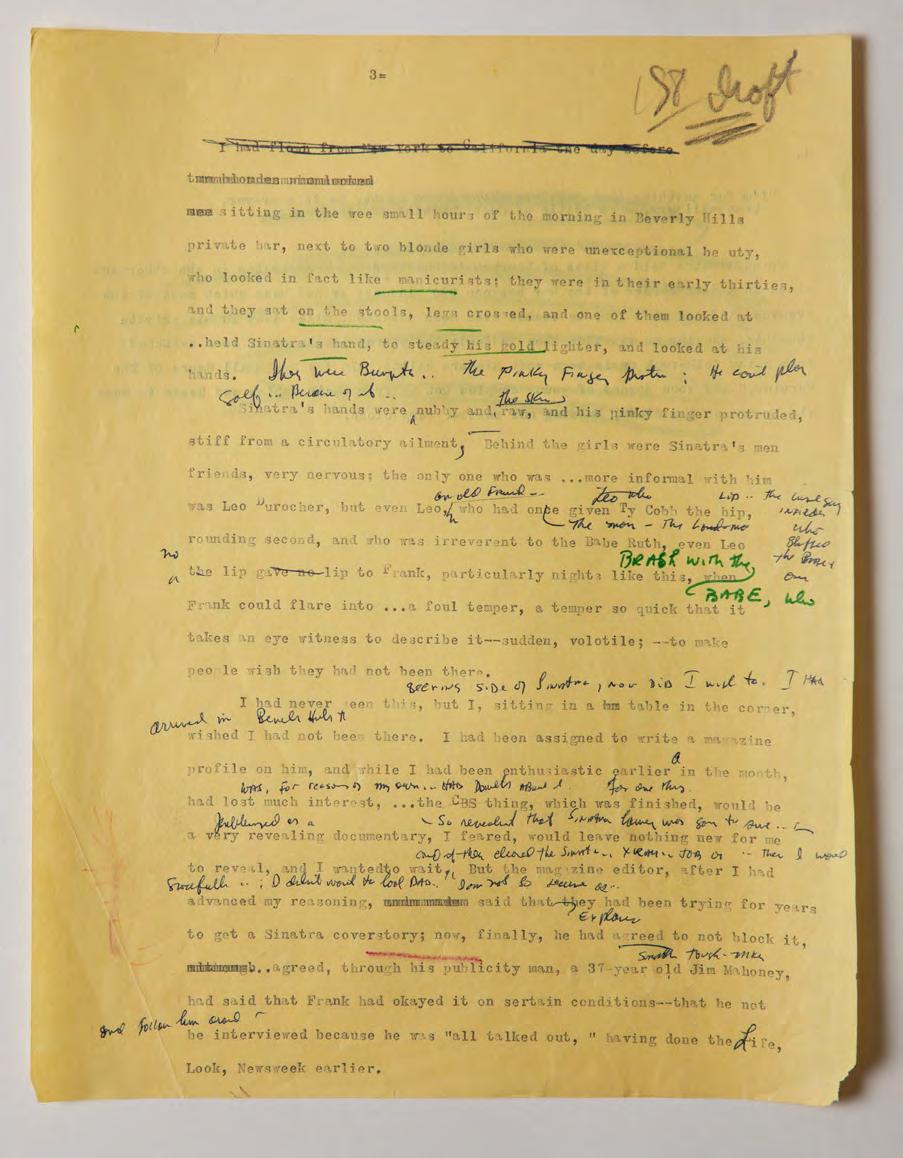 3=
1st Draft
I had flown from New York to California the day before
sitting in the wee small hours of the morning in Beverly Hills
private bar, next to two blonde girls who were unexceptional be uty,
who looked in fact like manicurists; they were in their early thirties,
and they sat on the stools, legs crossed, and one of them looked at
..held Sinatra's hand, to steady his gold lighter, and looked at his
hands. They were Bumpte.. The Pinky Finger ; He could play
Golf... Because of it.. the skin
Sinatra's hands were nubby and, raw, and his pinky finger protruded,
stiff from a circulatory ailment, Behind the girls were Sinatra's men
friends, very nervous; the only one who was ...more informal with him
an old Friend-- Leo who Lip.. the
was Leo Durocher, but even Leo, who had once given Ty Cobb the hip,
The man - The
who
rounding second, and who was irreverent to the Babe Ruth, even Leo
the
no BRASH with the
a the lip gave no lip to Frank, particularly nights like this, when
BABE, who
Frank could flare into ...a foul temper, a temper so quick that it
takes an eye witness to describe it--sudden, volotile; --to make
people wish they had not been there.
side of Sinatra, nor did I wish to. I had
I had never seen this, but I, sitting in a table in the corner,
arrived in
wished I had not been there. I had been assigned to write a magazine
a
profile on him, and while I had been enthusiastic earlier in the month,
was, for reasons of my own.. had Doubts about for one thing.
had lost much interest, ...the CBS thing, which was finished, would be
as a So revealed that Sinatra was to sue..
a very revealing documentary, I feared, would leave nothing new for me
the Sinatra.. Job Then I would
to reveal, and I wantedto wait,. But the magazine editor, after I had
; I didn't want to look bad..
advanced my reasoning, said that they had been trying for years
Explains
to get a Sinatra coverstory; now, finally, he had agreed to not block it,
Tough-
..agreed, through his publicity man, a 37-year old Jim Mahoney,
had said that Frank had okayed it on sertain conditions--that he not
and follow him around
be interviewed because he was "all talked out, " having done the Life,
Look, Newsweek earlier.